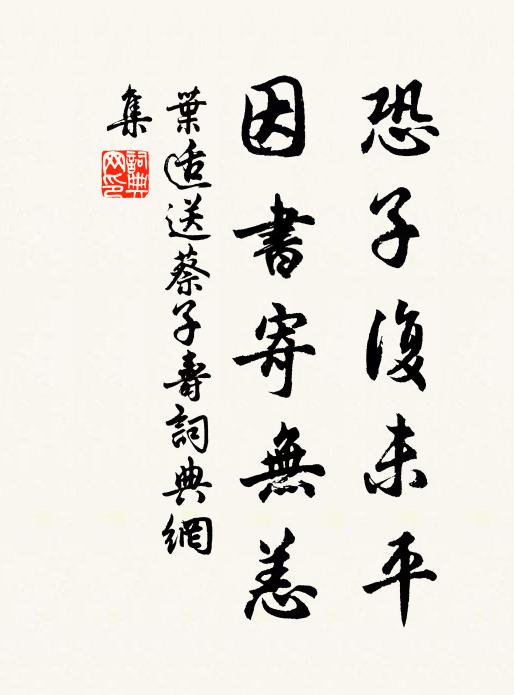 恐子復未平
因書寄無恙
葉适送蔡子壽詞典網
集
詞典网印